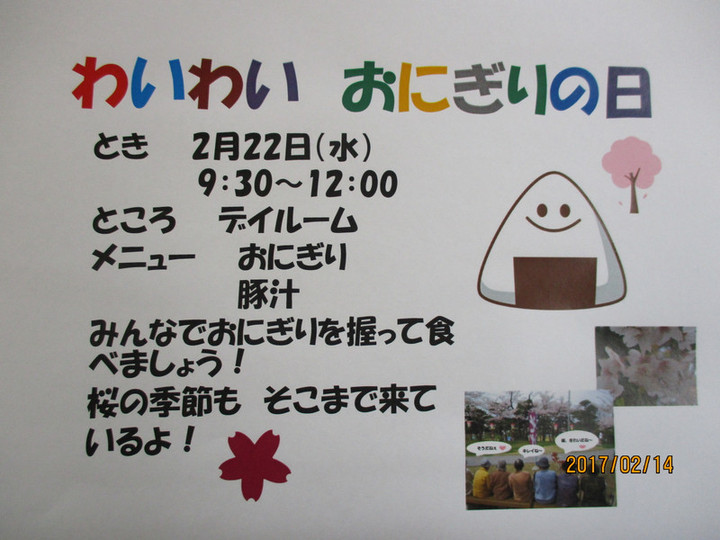 わいわい おにぎりの日
とき 2月22日(水)
9:30～12:00
ところ デイルーム
メニュー おにぎり
豚汁
みんなでおにぎりを握って食
べましょう!
桜の季節も そこまで来て
いるよ!
そうだねぇ
キレイね～
2017/02/14